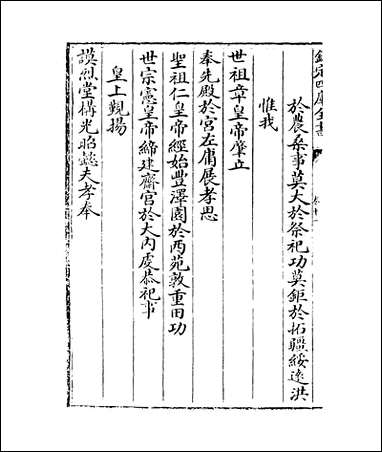 欽定四庫全書
於農桑事莫大於祭祀功莫鉅於拓疆綏遠洪
惟我
世祖章皇帝肇立
奉先殿於宮左庸展孝思
聖祖仁皇帝經始豐澤園於西苑敦重田功
世宗憲皇帝締建齋宮於大內虔恭祀事
皇上覲揚
謨烈堂構光昭懿夫孝奉